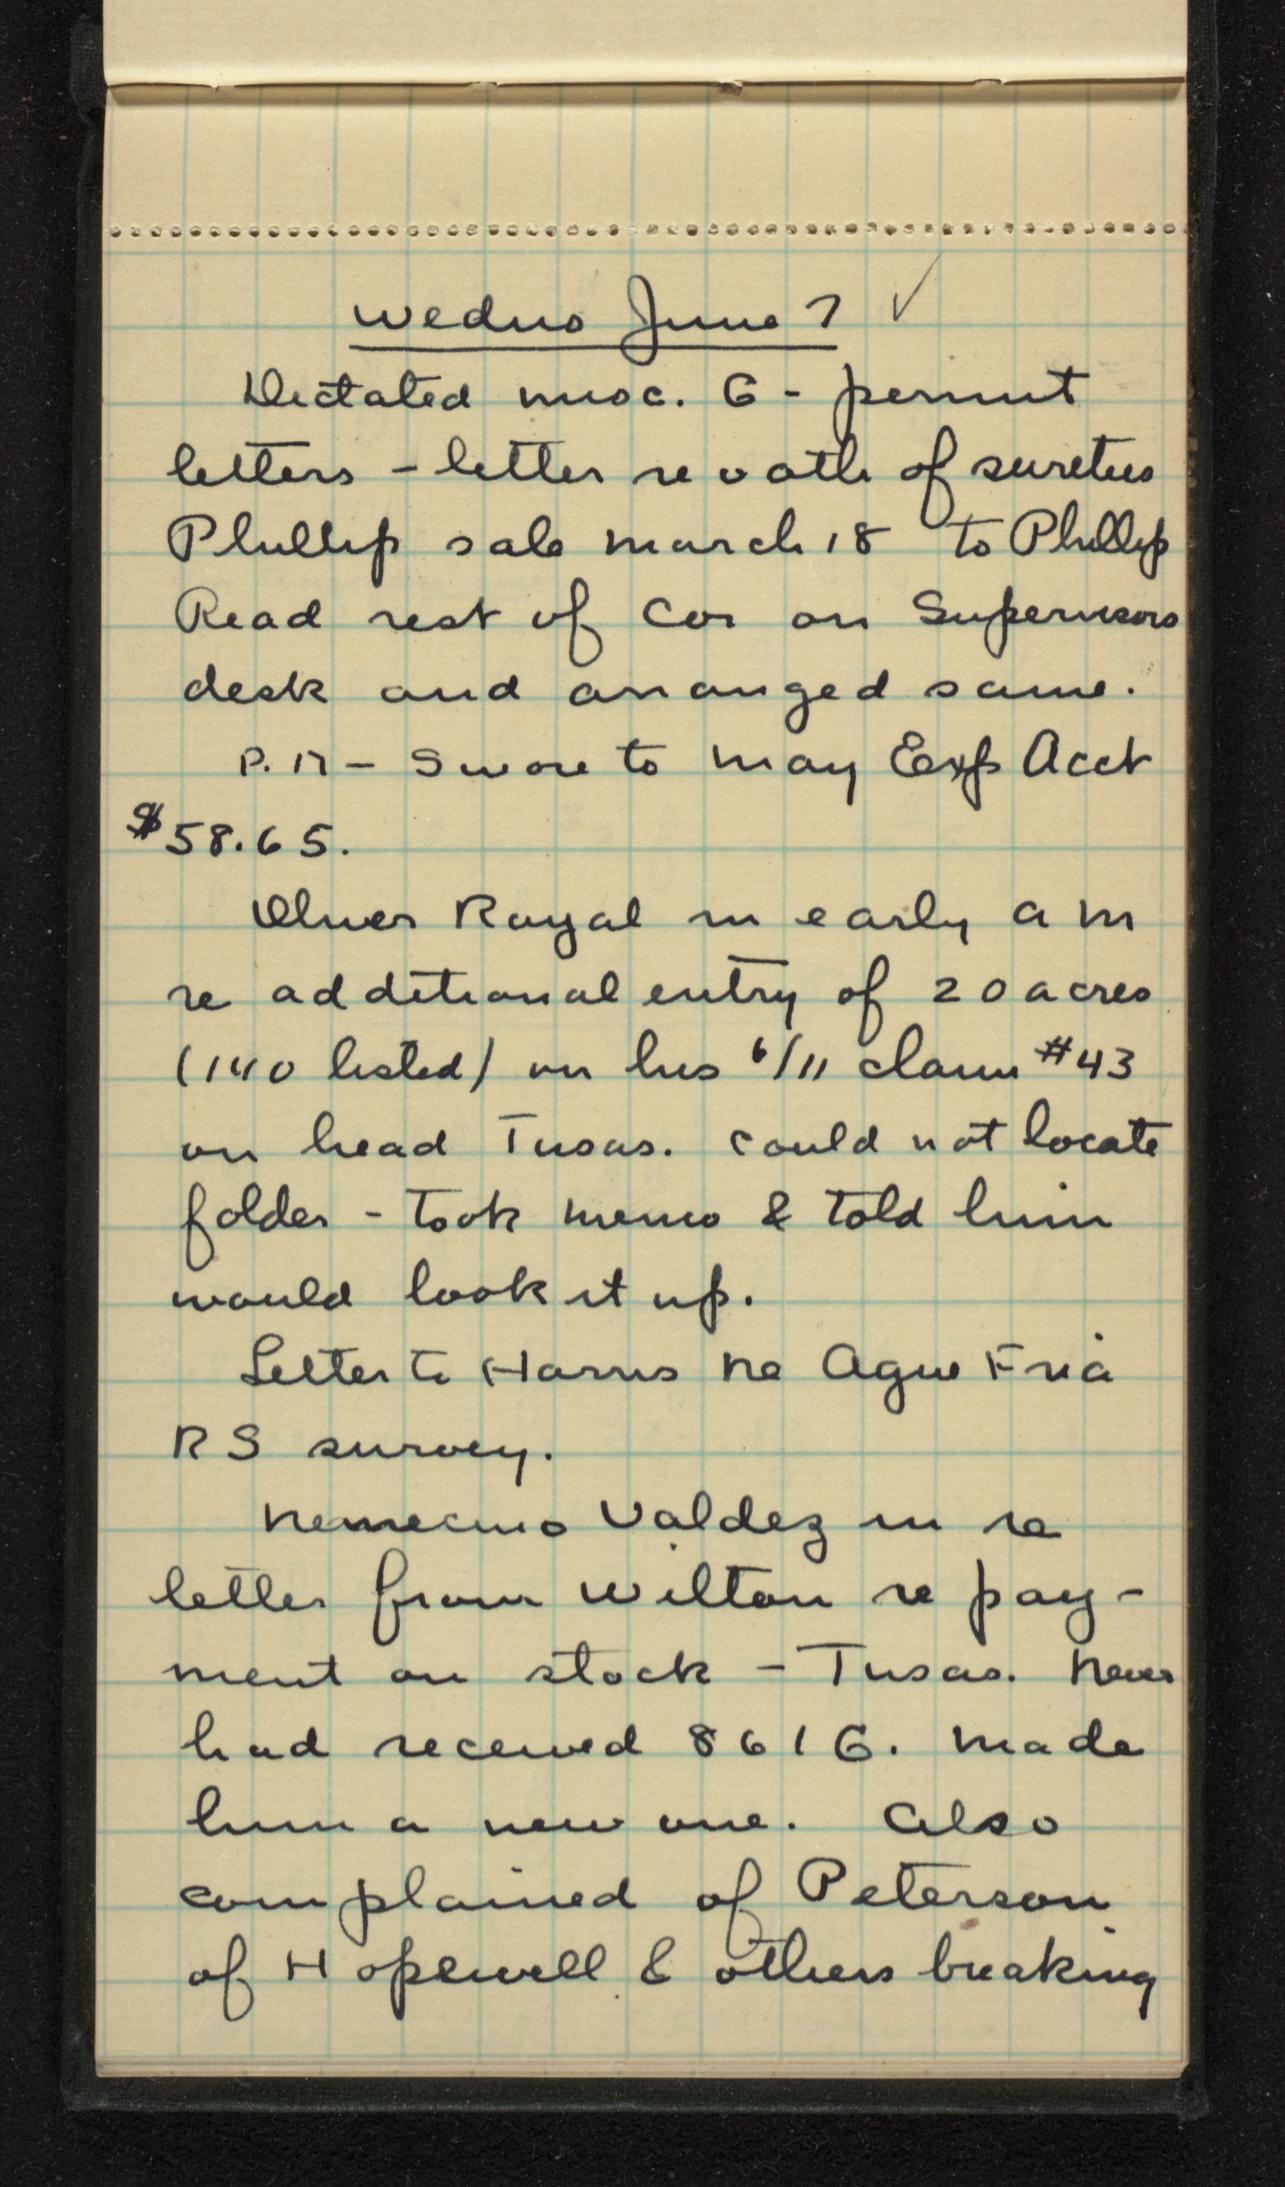 Wednes June 7 ✓
Dictated misc. G - permit
letters - letter re oath of sureties
Phillip sale March 18 to Phillip
Read rest of Cor on Supervisors
desk and arranged same.
P. M - Swore to May Exp Acct
$58.65.
Oliver Royal in early a m
re additional entry of 20 acres
(140 listed) on his 6/11 claim #43
on head Tusas. Could not locate
folder - Took memo & told him
would look it up.
Letter to Harris re Agua Fria
R S survey.
Nemecino Valdez in re
letter from Wilton re pay-
ment on stock - Tusas. Never
had received 861 G. Made
him a new one. Also
complained of Peterson
of Hopewell & others breaking